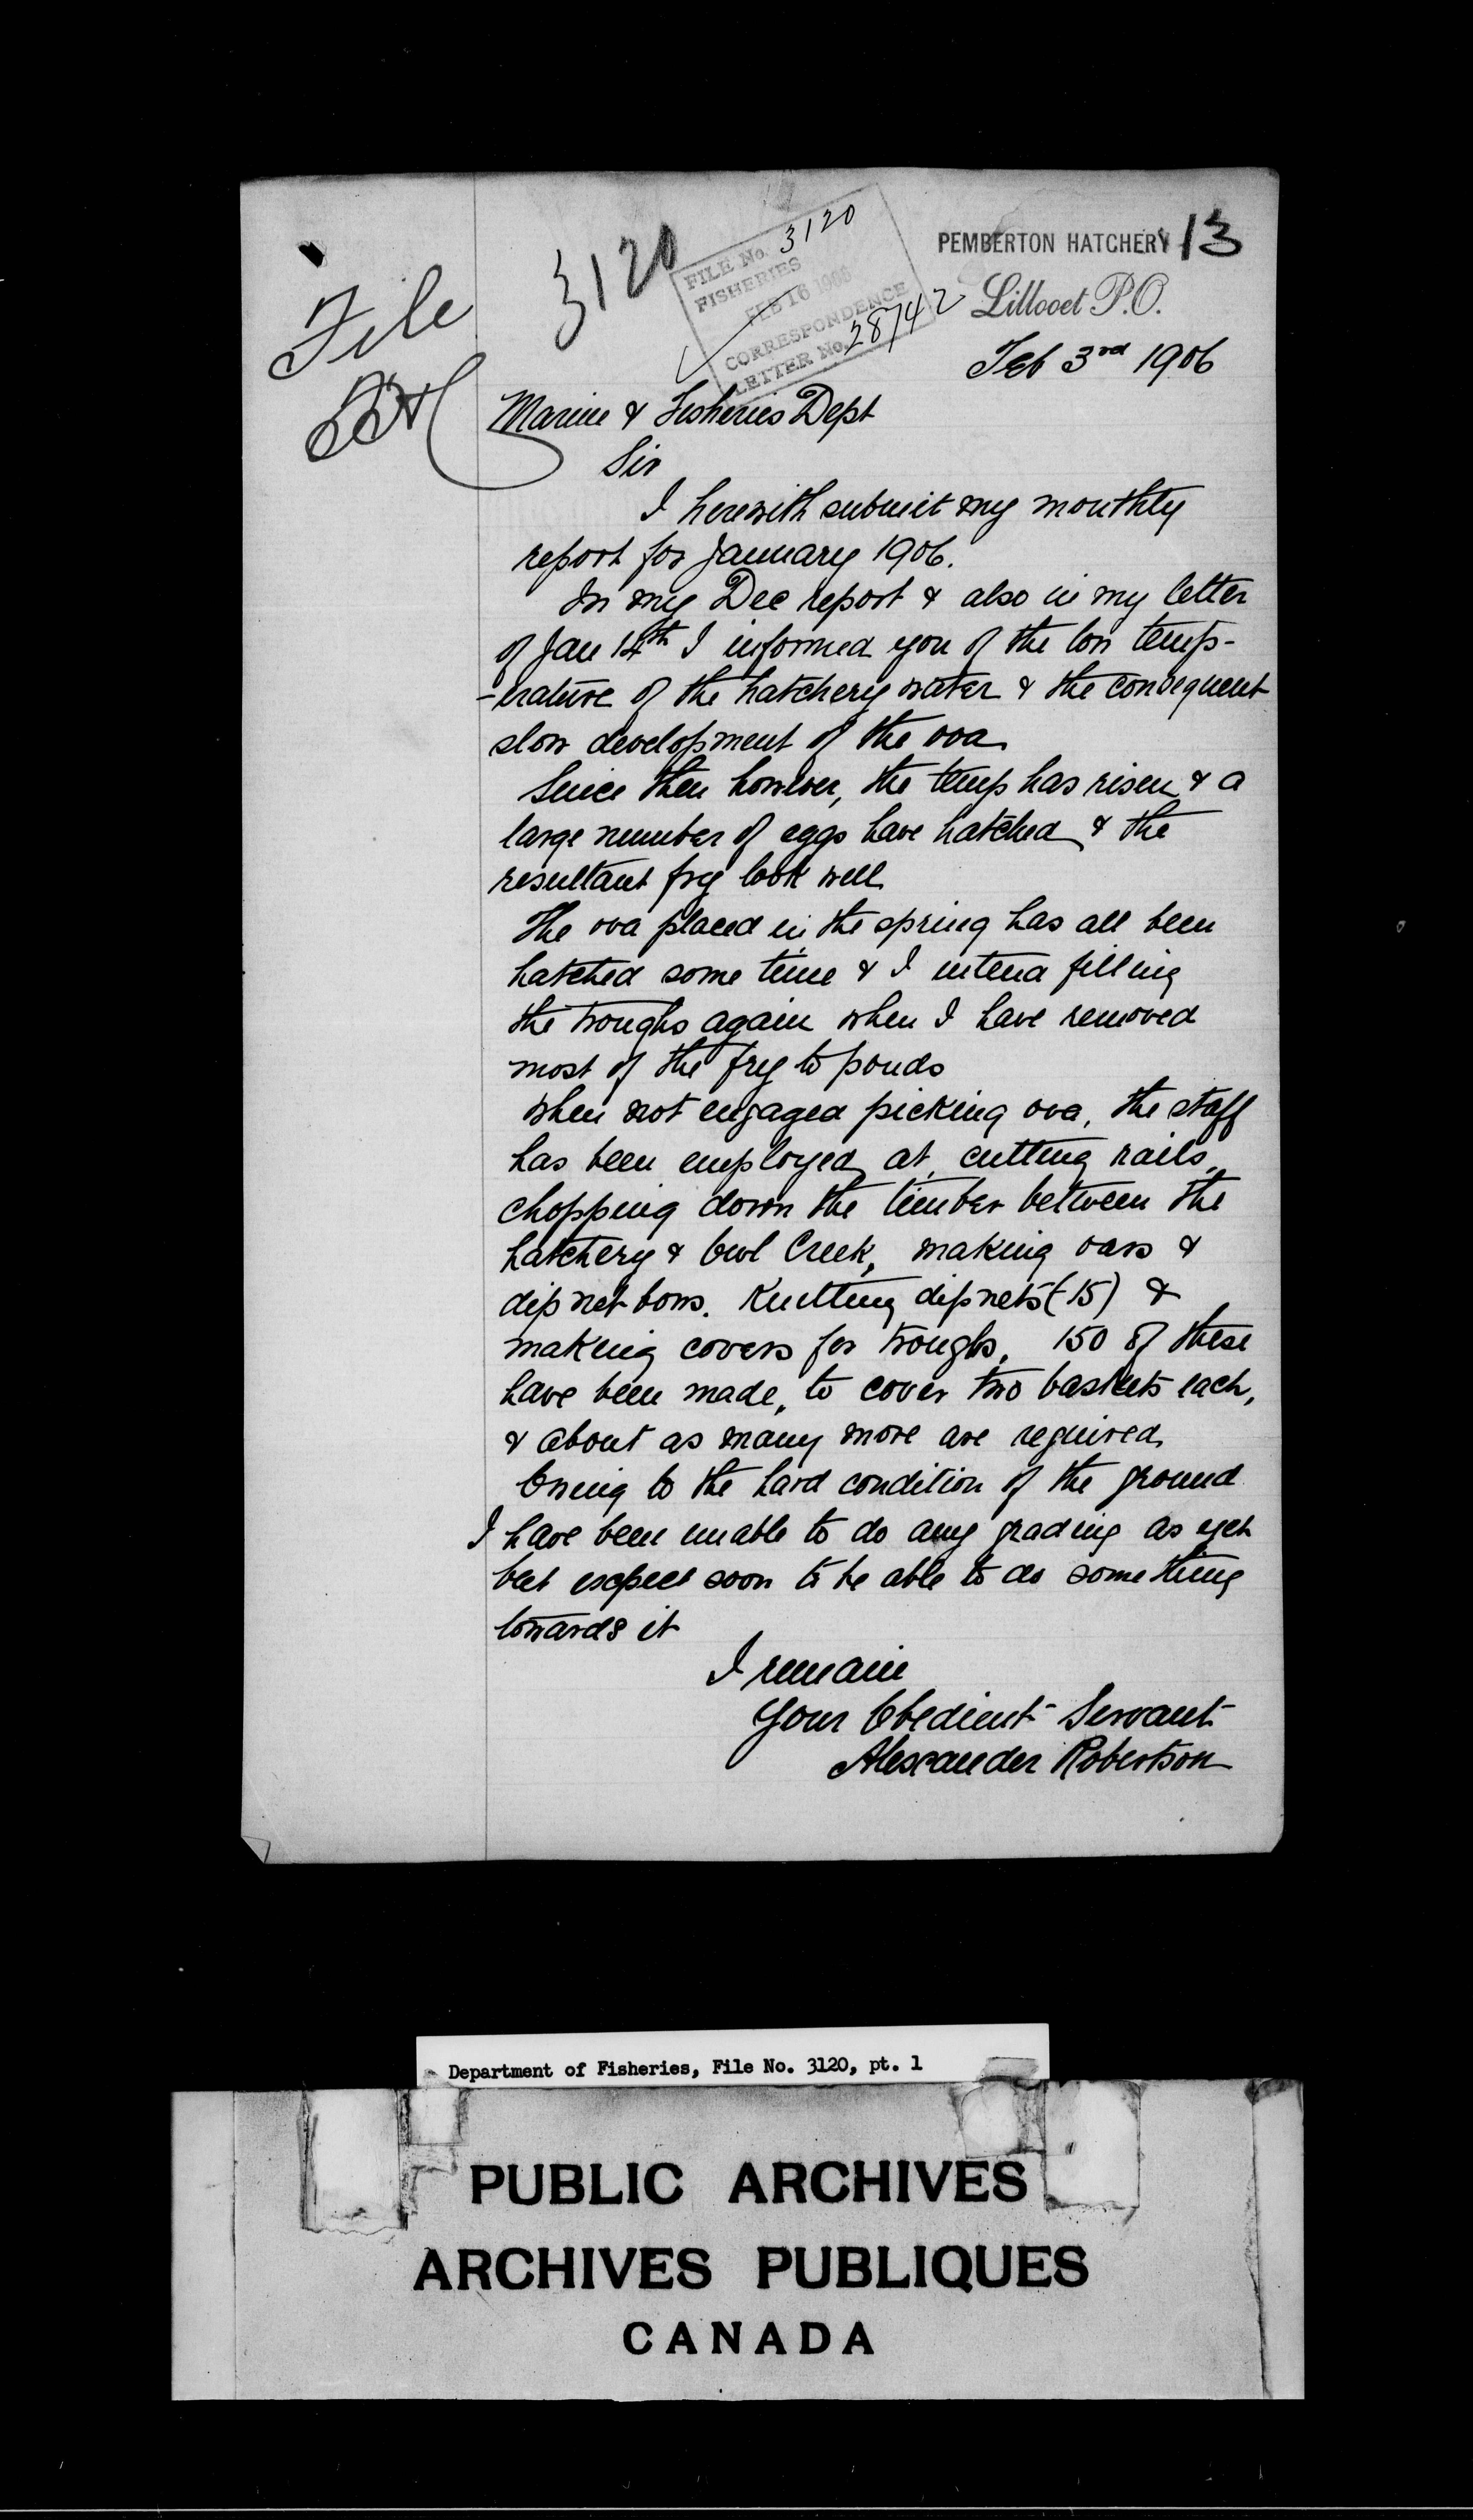 13
PEMBERTON HATCHERY
Lillooet P.O.
3120
FILE No. 3120
FISHERIES
FEB 16 1906
CORRESPONDENCE
LETTER No. 28742
File
Feb 3rd 1906
Marine & Fisheries Dept
Sir
I herewith submit my monthly
report for January 1906.
In my Dec report & also in my letter
of Jan 14th I informed you of the low temp-
-erature of the hatchery water & the consequent
slow development of the ova
Since then however, the temp has risen & a
large number of eggs have hatched & the
resultant fry look well
The ova placed in the spring has all been
hatched some time & I intend filling
the troughs again when I have removed
most of the fry to ponds
When not engaged picking ova, the staff
has been employed at, cutting rails,
chopping down the timber between the
hatchery & Owl Creek, making oars &
dip net bows. Knitting dipnets (15) &
making covers for troughs, 150 of these
have been made, to cover two baskets each,
& about as many more are required
Owing to the hard condition of the ground
I have been unable to do any grading as yet
but expect soon to be able to do something
towards it
I remain
Your Obedient Servant
Alexander Robertson
Department of Fisheries, File No. 3120, pt. 1
PUBLIC ARCHIVES
ARCHIVES PUBLIQUES
CANADA